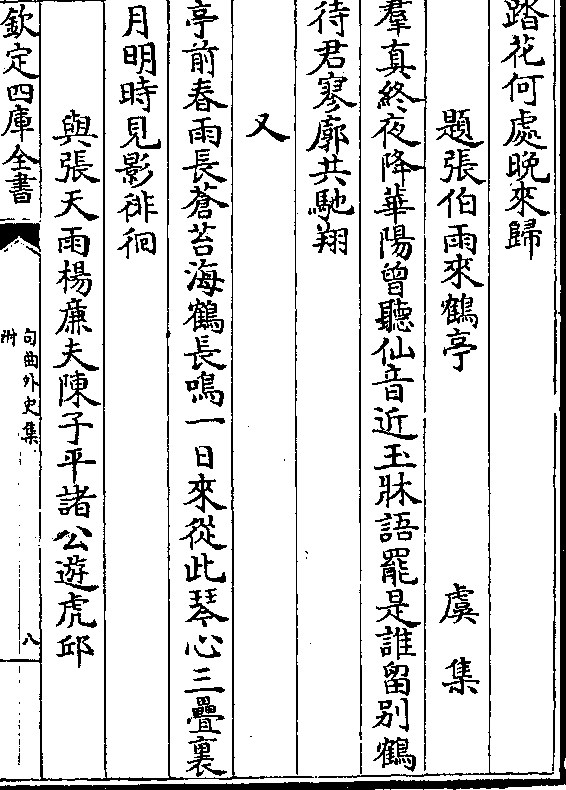 踏花何處晚來歸
題張伯雨來鶴亭 虞集
羣真終夜降華陽曾聽仙音近玉牀語罷是誰留别鶴
待君寥廓共馳翔
又
亭前春雨長蒼苔海鶴長鳴一日來從此琴心三疊裏
月明時見影徘徊
與張天雨楊廉夫陳子平諸公遊虎邱
欽定四庫全書
句曲外史集
附
八